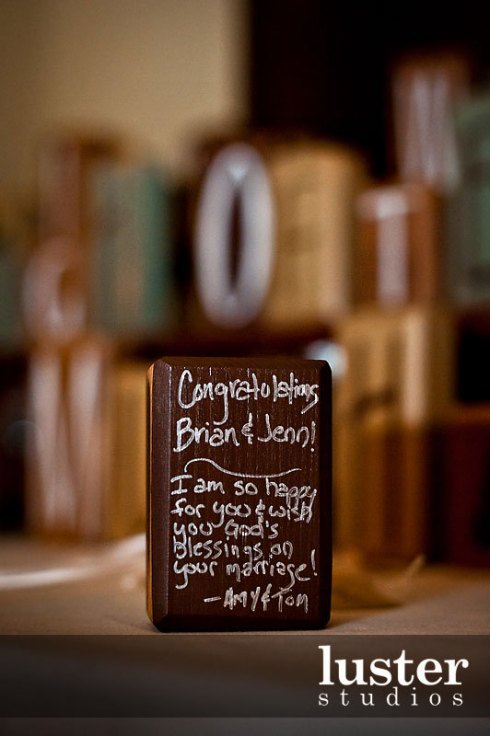 Congratulations
Brian & Jenn!
I am so happy
for you & wish
you God's
blessings on
your marriage!
- Amy & Tom
luster
studios